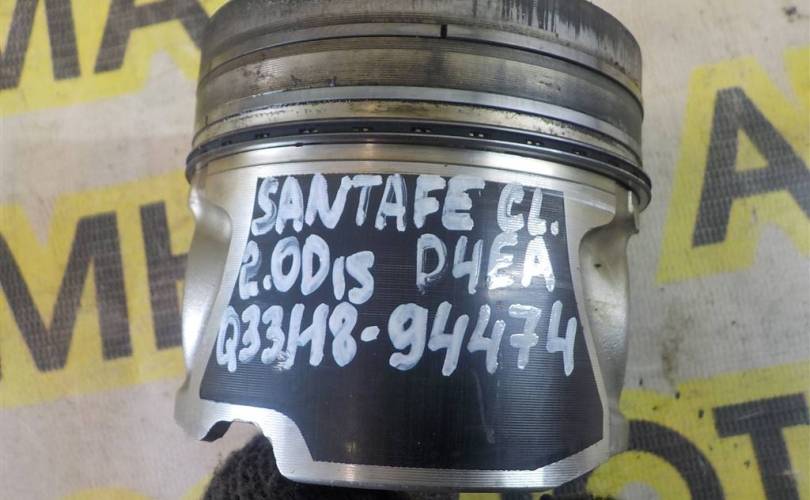 SANTAFE CL.
2.0Dis D4EA
Q33H8-94474